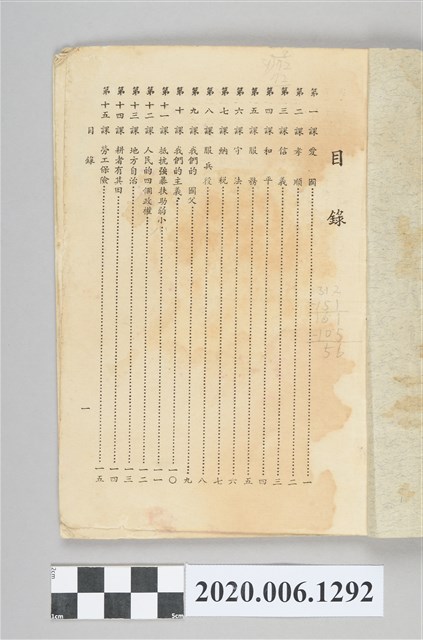 目錄
第一課 愛國 一
第二課 孝順 二
第三課 信義 三
第四課 和平 四
第五課 服務 五
第六課 守法 六
第七課 納稅 七
第八課 服兵役 八
第九課 我們的 國父 九
第十課 我們的主義 一〇
第十一課 抵抗強暴扶助弱小 一一
第十二課 人民的四個政權 一二
第十三課 地方自治 一三
第十四課 耕者有其田 一四
第十五課 勞工保險 一五
目錄 一
312
56
2cm
1cm
5cm
2020.006.1292